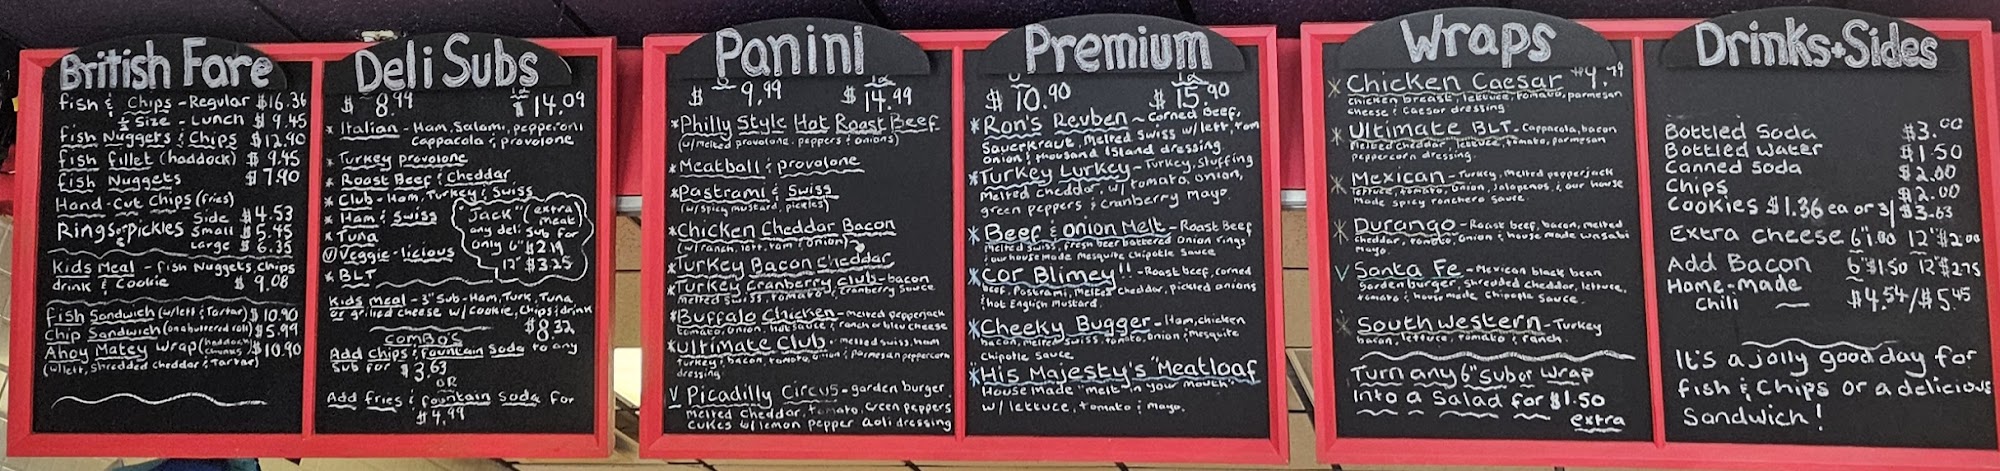 British Fare
fish & Chips - Regular $16.36
½ Size - Lunch $9.45
fish Nuggets & Chips $12.90
fish fillet (haddock) $9.45
fish Nuggets $7.90
Hand-Cut Chips (fries)
Side $4.53
Rings or Pickles Small $5.45
Large $6.35
Kids Meal - fish Nuggets, Chips
drink & Cookie $9.08
fish Sandwich (w/lett & Tartar) $10.90
Chip Sandwich (on a buttered roll) $5.99
Ahoy Matey Wrap (haddock chunks $10.90
(w/lett, Shredded cheddar & Tartar)
Deli Subs
6" 12"
$8.99 $14.09
* Italian - Ham, Salami, pepperoni
Cappacola & provolone
* Turkey provolone
* Roast Beef & Cheddar
* Club - Ham, Turkey & Swiss
* Ham & Swiss
* Tuna
V Veggie-licious
* BLT
"Jack" (extra)
meat
any deli Sub for
only 6" $2.19
12" $3.25
Kids Meal - 3" Sub - Ham, Turk, Tuna
or grilled cheese w/ Cookie, Chips & drink
$8.32
COMBO'S
Add Chips & fountain Soda to any
Sub for $3.63
OR
Add fries & fountain Soda for
$4.99
Panini
6" 12"
$9.99 $14.99
* Philly Style Hot Roast Beef
(w/ melted provolone, peppers & onions)
* Meatball & provolone
* Pastrami & Swiss
(w/ Spicy mustard, pickles)
* Chicken Cheddar Bacon
(w/ ranch, lett, tom & onion)
* Turkey Bacon Cheddar
* Turkey Cranberry Club - bacon
melted Swiss, tomato & Cranberry Sauce
* Buffalo Chicken - melted pepperjack
tomato, onion, hot sauce & ranch or bleu cheese
* Ultimate Club - melted swiss, ham
turkey, bacon, tomato, onion & parmesan peppercorn
dressing
V Picadilly Circus - garden burger
melted Cheddar, tomato, Green peppers
Cukes w/ lemon pepper aoli dressing
Premium
6" 12"
$10.90 $15.90
* Ron's Reuben - Corned Beef,
Sauerkraut, melted Swiss w/ lett, tom
onion & thousand Island dressing.
* Turkey Lurkey - Turkey, Stuffing
Melted Cheddar, w/ tomato, onion,
green peppers & cranberry mayo.
* Beef & Onion Melt - Roast Beef
Melted Swiss, fresh beer battered Onion rings
& our house made mesquite chipotle Sauce
* Cor Blimey!! - Roast beef, corned
beef, Pastrami, melted cheddar, pickled onions
& hot English Mustard.
* Cheeky Bugger - Ham, chicken
bacon, melted Swiss, tomato, onion & mesquite
Chipotle Sauce
* His Majesty's "Meatloaf
House Made "melt in your mouth"
w/ lettuce, tomato & mayo.
Wraps
* Chicken Caesar $9.79
chicken breast, lettuce, tomato, parmesan
cheese & Caesar dressing
* Ultimate BLT - Cappacola, bacon
Melted cheddar, lettuce, tomato, parmesan
peppercorn dressing.
* Mexican - Turkey, melted pepperjack
lettuce, tomato, onion, jalapenos, & our house
made spicy ranchero sauce.
* Durango - Roast beef, bacon, melted
cheddar, tomato, onion & house made wasabi
mayo.
V Santa Fe - Mexican black bean
gardenburger, shredded cheddar, lettuce,
tomato & housemade Chipotle Sauce.
* Southwestern - Turkey
bacon, lettuce, tomato & ranch.
Turn any 6" Sub or Wrap
Into a Salad for $1.50
extra
Drinks + Sides
Bottled Soda $3.00
Bottled Water $1.50
Canned Soda $2.00
Chips $2.00
Cookies $1.36 ea or 3/$3.63
Extra Cheese 6" 1.00 12" $2.00
Add Bacon 6" $1.50 12" $2.75
Home-made
Chili - $4.54/$5.45
It's a jolly good day for
fish & Chips or a delicious
Sandwich!